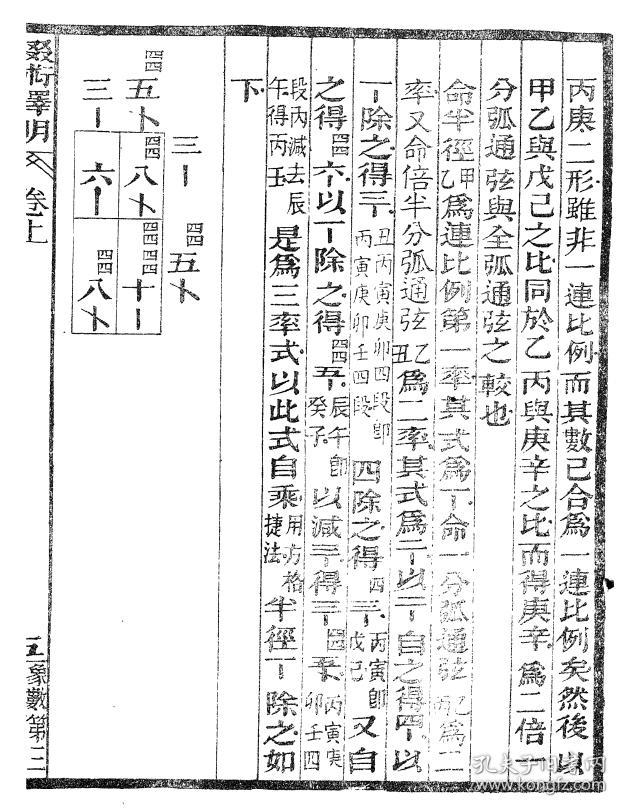 丙庚二形雖非一連比例而其數已合爲一連比例矣然後以
甲乙與戊己之比同於乙丙與庚辛之比而得庚辛爲二倍一
分弧通弦與全弧通弦之較也
命半徑甲乙爲連比例第一率其式爲丅命一分弧通弦爲二
率又命倍半分弧通弦乙丑爲二率其式爲二以二自之得四以
丅除之得三丑丙寅庚卯四段卽丙寅庚卯壬四段四除之得四三丙寅卽戊己又自
之得四四六以丅除之得四四五辰午卽癸子以減三得三四四五丙寅庚卯壬四
段內減去辰午得丙壬是爲三率式以此式自乘用方格捷法半徑丅除之如
下
三丨四四五卜
四四五卜四四八卜四四四四十丨
三丨六丨四四八卜
綴術釋明卷上
五象數第三
孔夫子旧书网